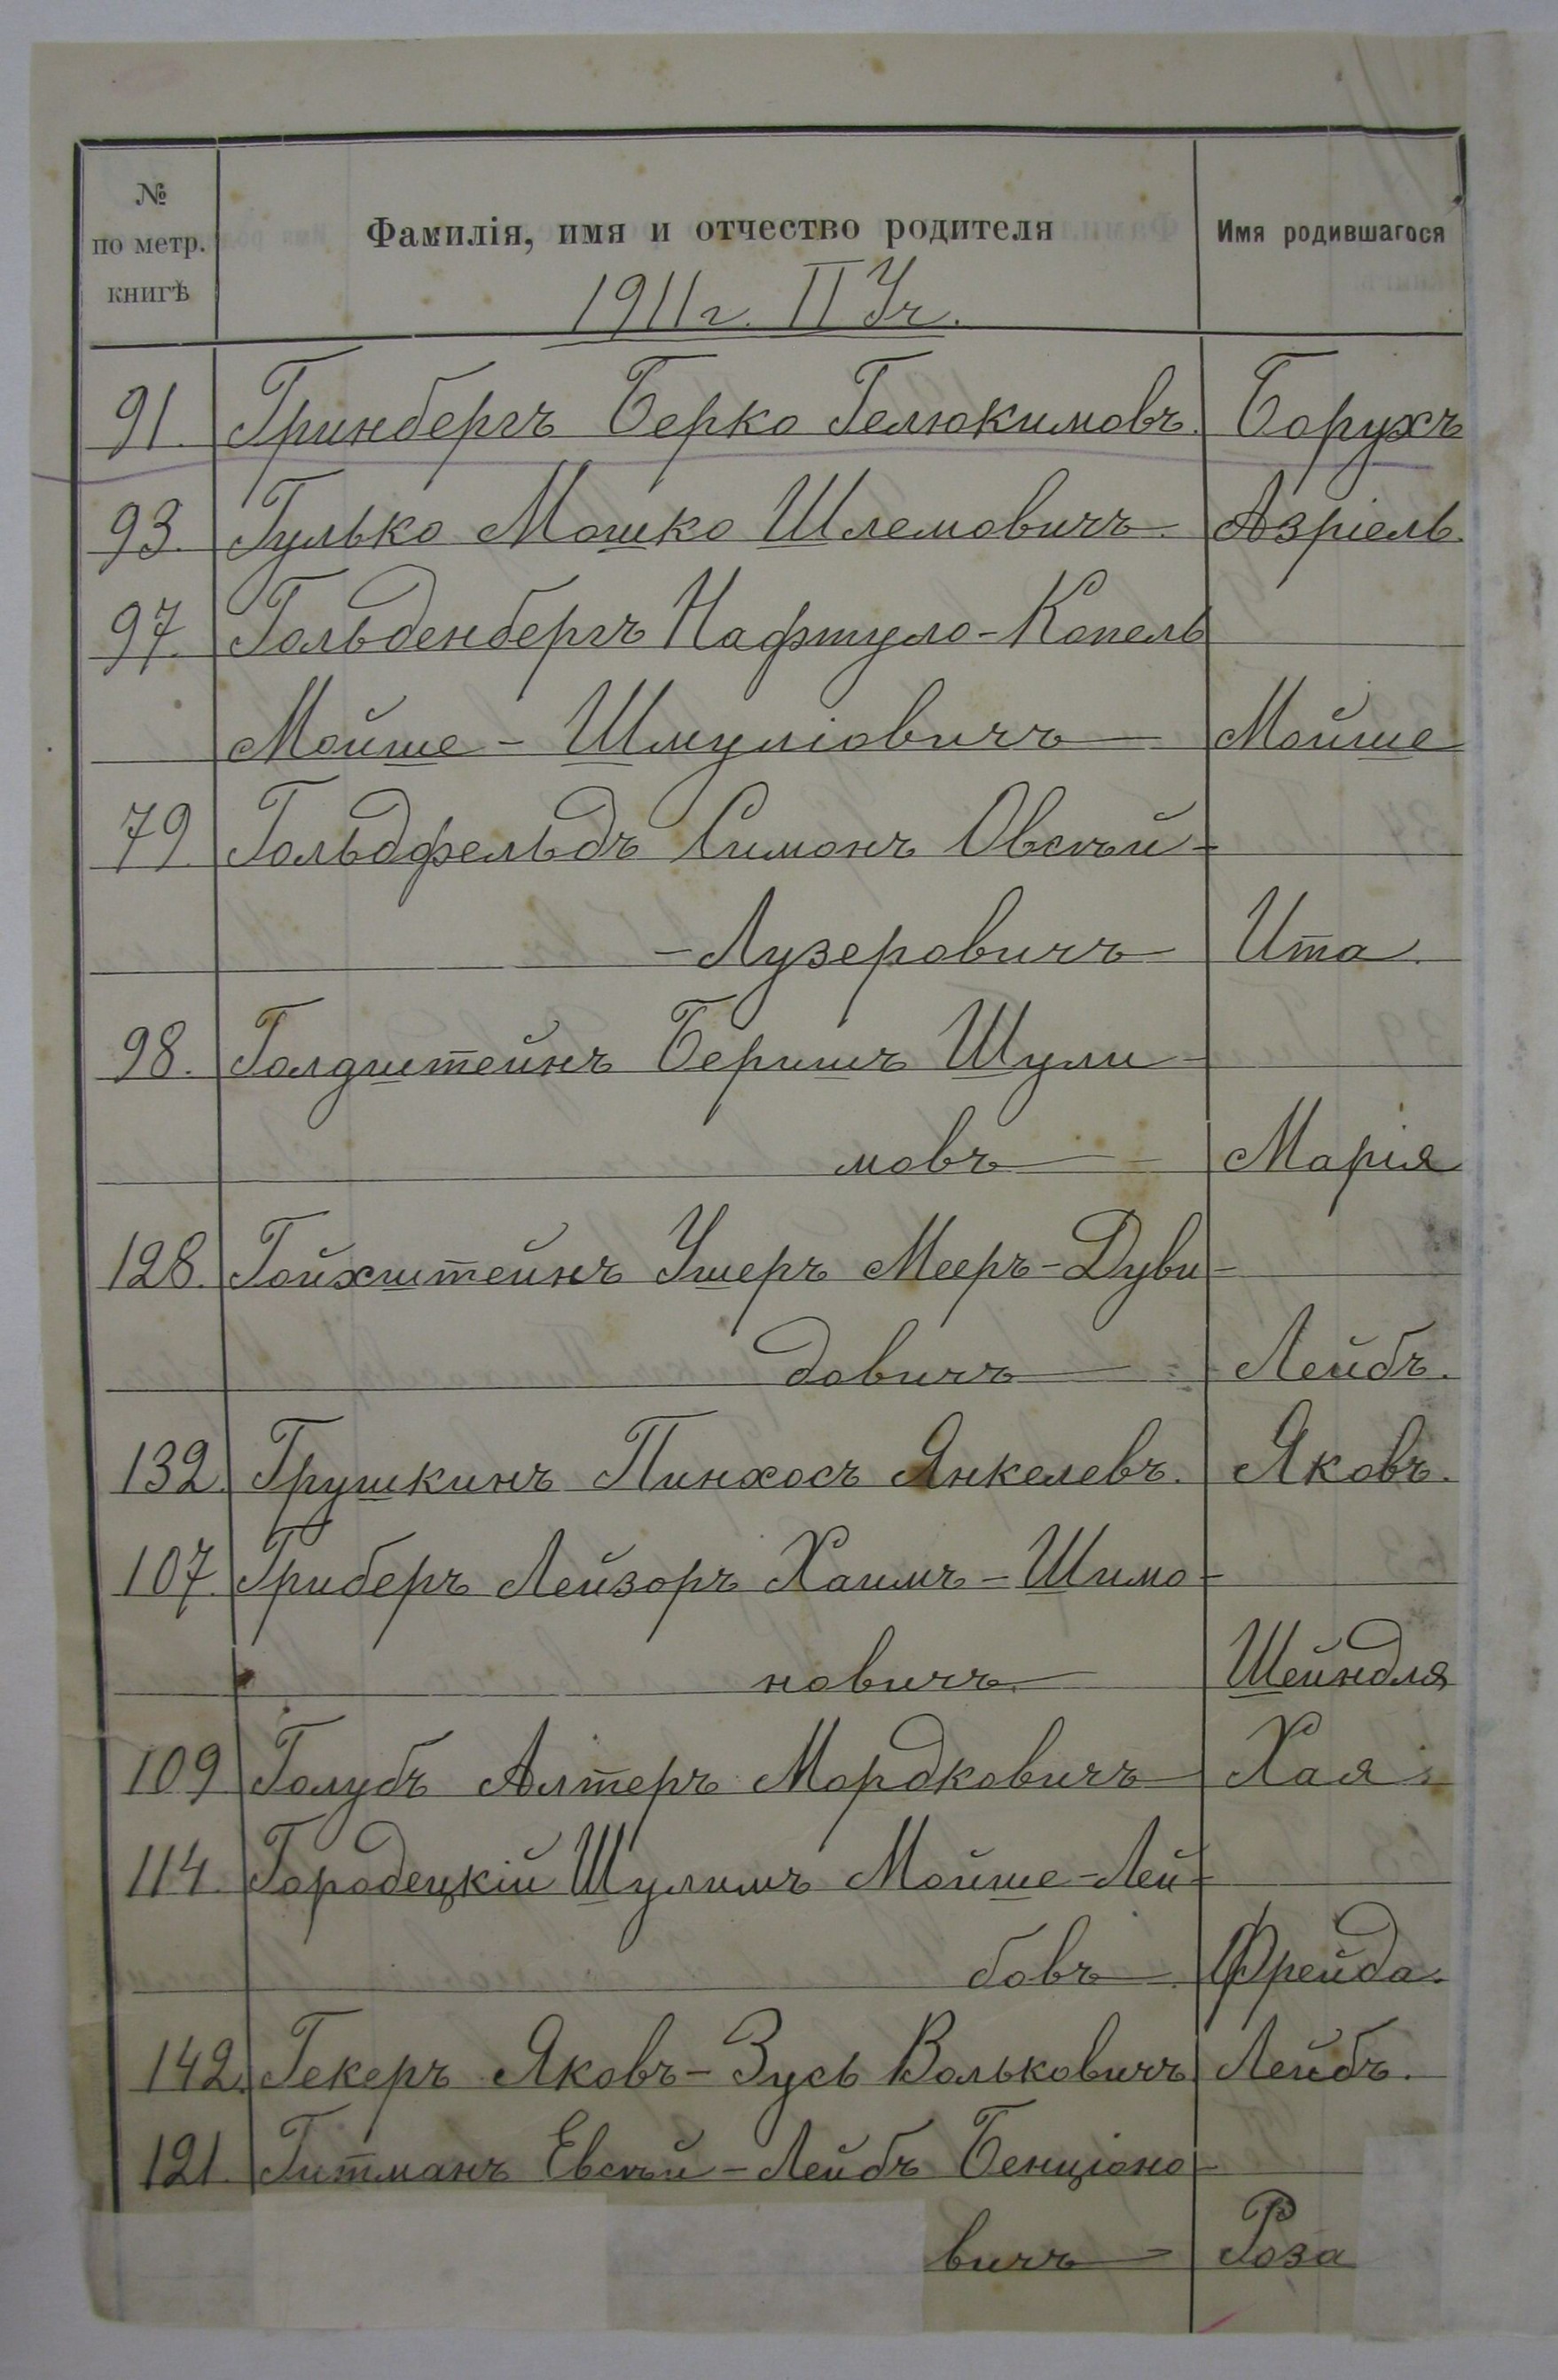 № по метр. книгѣ Фамилія, имя и отчество родителя Имя родившагося
1911 г. II Уч.
91. Гринбергъ Берко Гелюкимовъ. Борухъ
93. Гулько Мошко Шлемовичъ. Азріель.
97. Гольденбергъ Нафтуло-Копель
Мойше-Шмуліовичъ Мойше
79. Гольдфельдъ Симонъ Овсѣй-
-Лузеровичъ Ита.
98. Голдштейнъ Беришъ Шули-
мовъ Марія
128. Гойхштейнъ Ушеръ Мееръ-Дуви-
довичъ Лейбъ.
132. Грушкинъ Пинхосъ Янкелевъ. Яковъ.
107. Гриберъ Лейзоръ Хаимъ-Шимо-
новичъ Шейндля
109 Голубъ Алтеръ Мордковичъ Хая
114. Городецкій Шулимъ Мойше-Лей-
бовъ Фрейда.
142. Гекеръ Яковъ-Зусь Вольковичъ Лейбъ.
121. Гитманъ Евсѣй-Лейбъ Бенціоно-
вичъ Роза